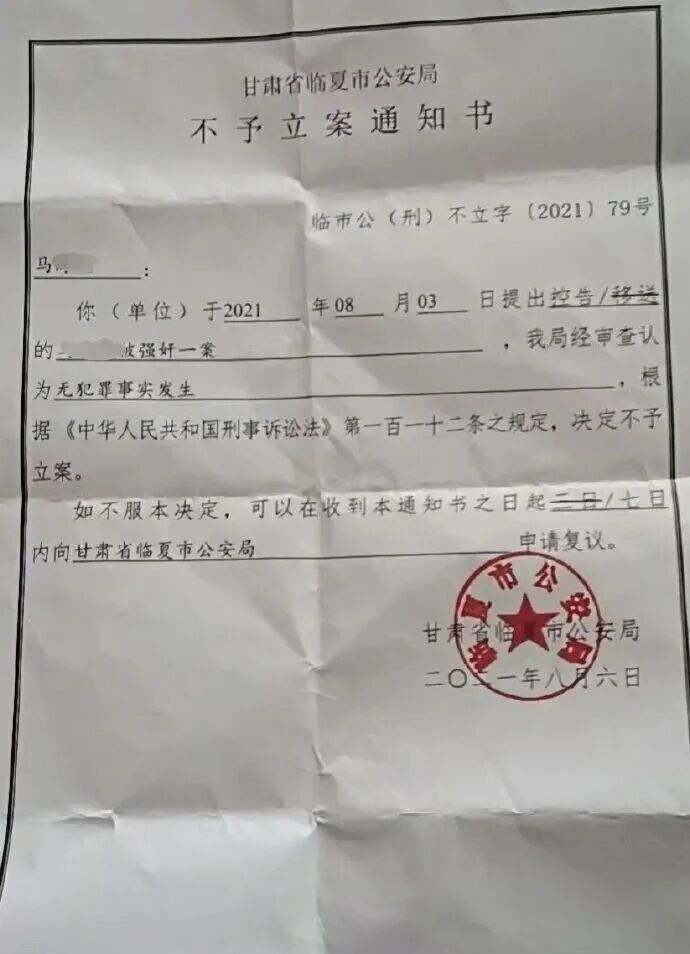 甘肃省临夏市公安局
不予立案通知书
临市公（刑）不立字〔2021〕79号
马：
你（单位）于2021年08月03日提出控告/移送
的被强奸一案，我局经审查认
为无犯罪事实发生，根
据《中华人民共和国刑事诉讼法》第一百一十二条之规定，决定不予
立案。
如不服本决定，可以在收到本通知书之日起三日/七日
内向甘肃省临夏市公安局申请复议。
临夏市公安局
甘肃省临夏市公安局
二〇二一年八月六日